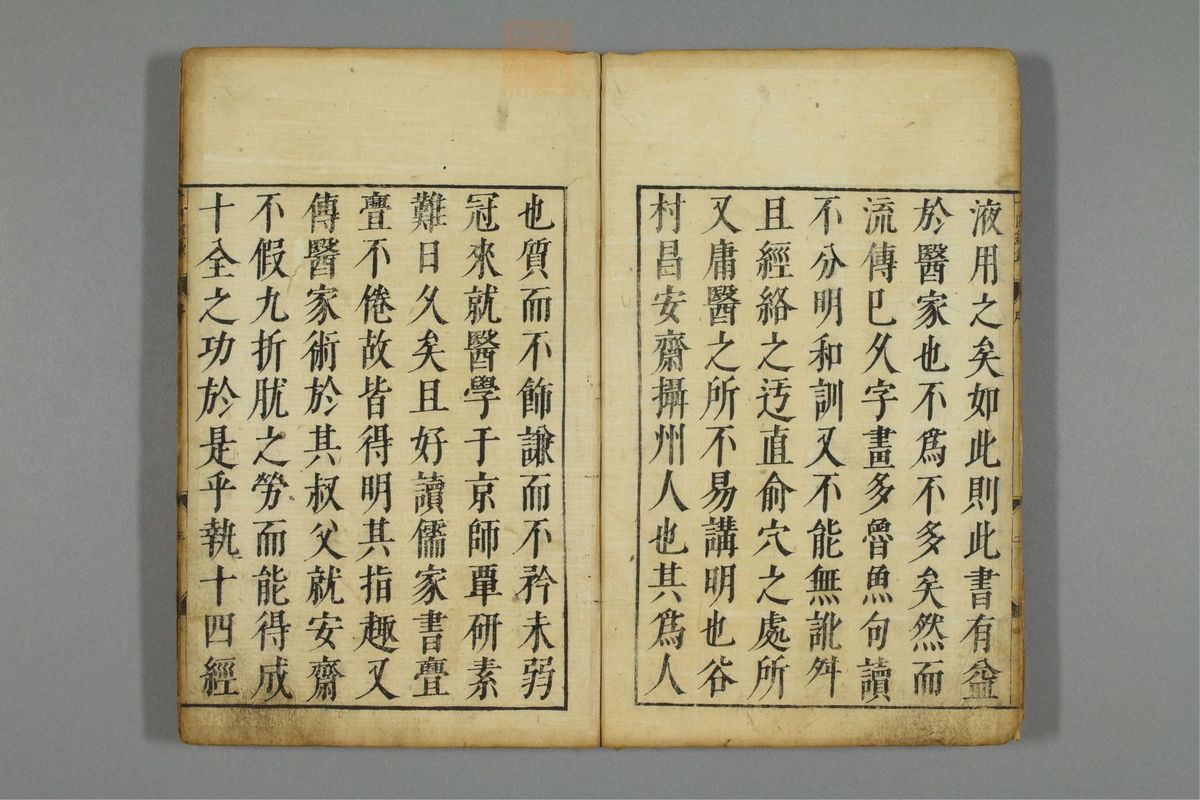 液用之矣如此則此書有益
於醫家也不爲不多矣然而
流傳已久字畫多魯魚句讀
不分明和訓又不能無訛舛
且經絡之迃直俞穴之處所
又庸醫之所不易講明也谷
村昌安齋攝州人也其爲人
也質而不飾謙而不矜未弱
冠來就醫學于京師覃研素
難日久矣且好讀儒家書亹
亹不倦故皆得明其指趣又
傳醫家術於其叔父就安齋
不假九折肱之勞而能得成
十全之功於是乎執十四經